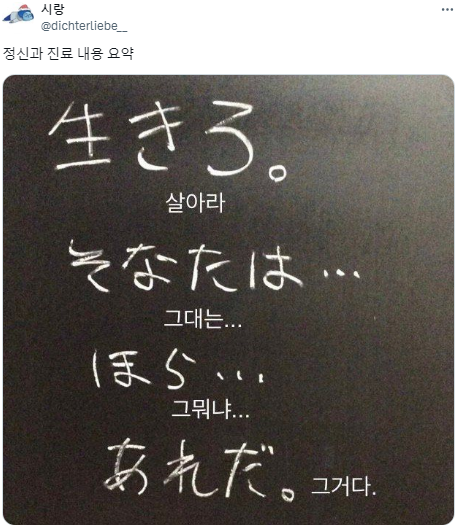 시랑
@dichterliebe__
정신과 진료 내용 요약
生きろ。
살아라
そなたは…
그대는...
ほら…
그뭐냐...
あれだ。 그거다.